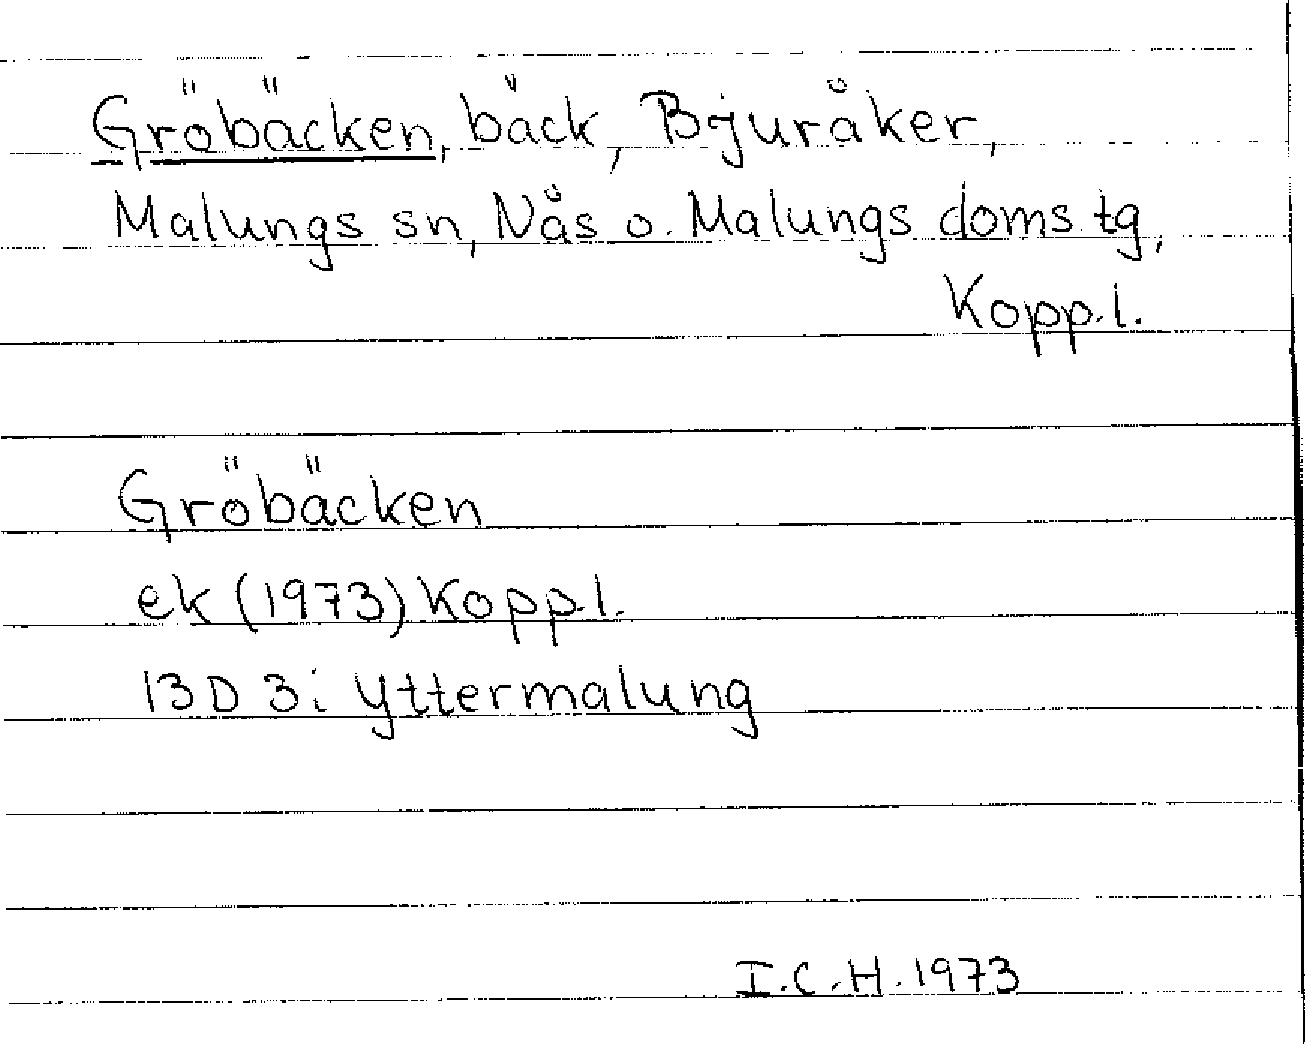 Gröbäcken, bäck, Bjuråker,
Malungs sn, Näs o. Malungs doms.tg,
Kopp.l.
Gröbäcken
ek (1973) Kopp.l.
13D 3i Yttermalung
I.C.H. 1973